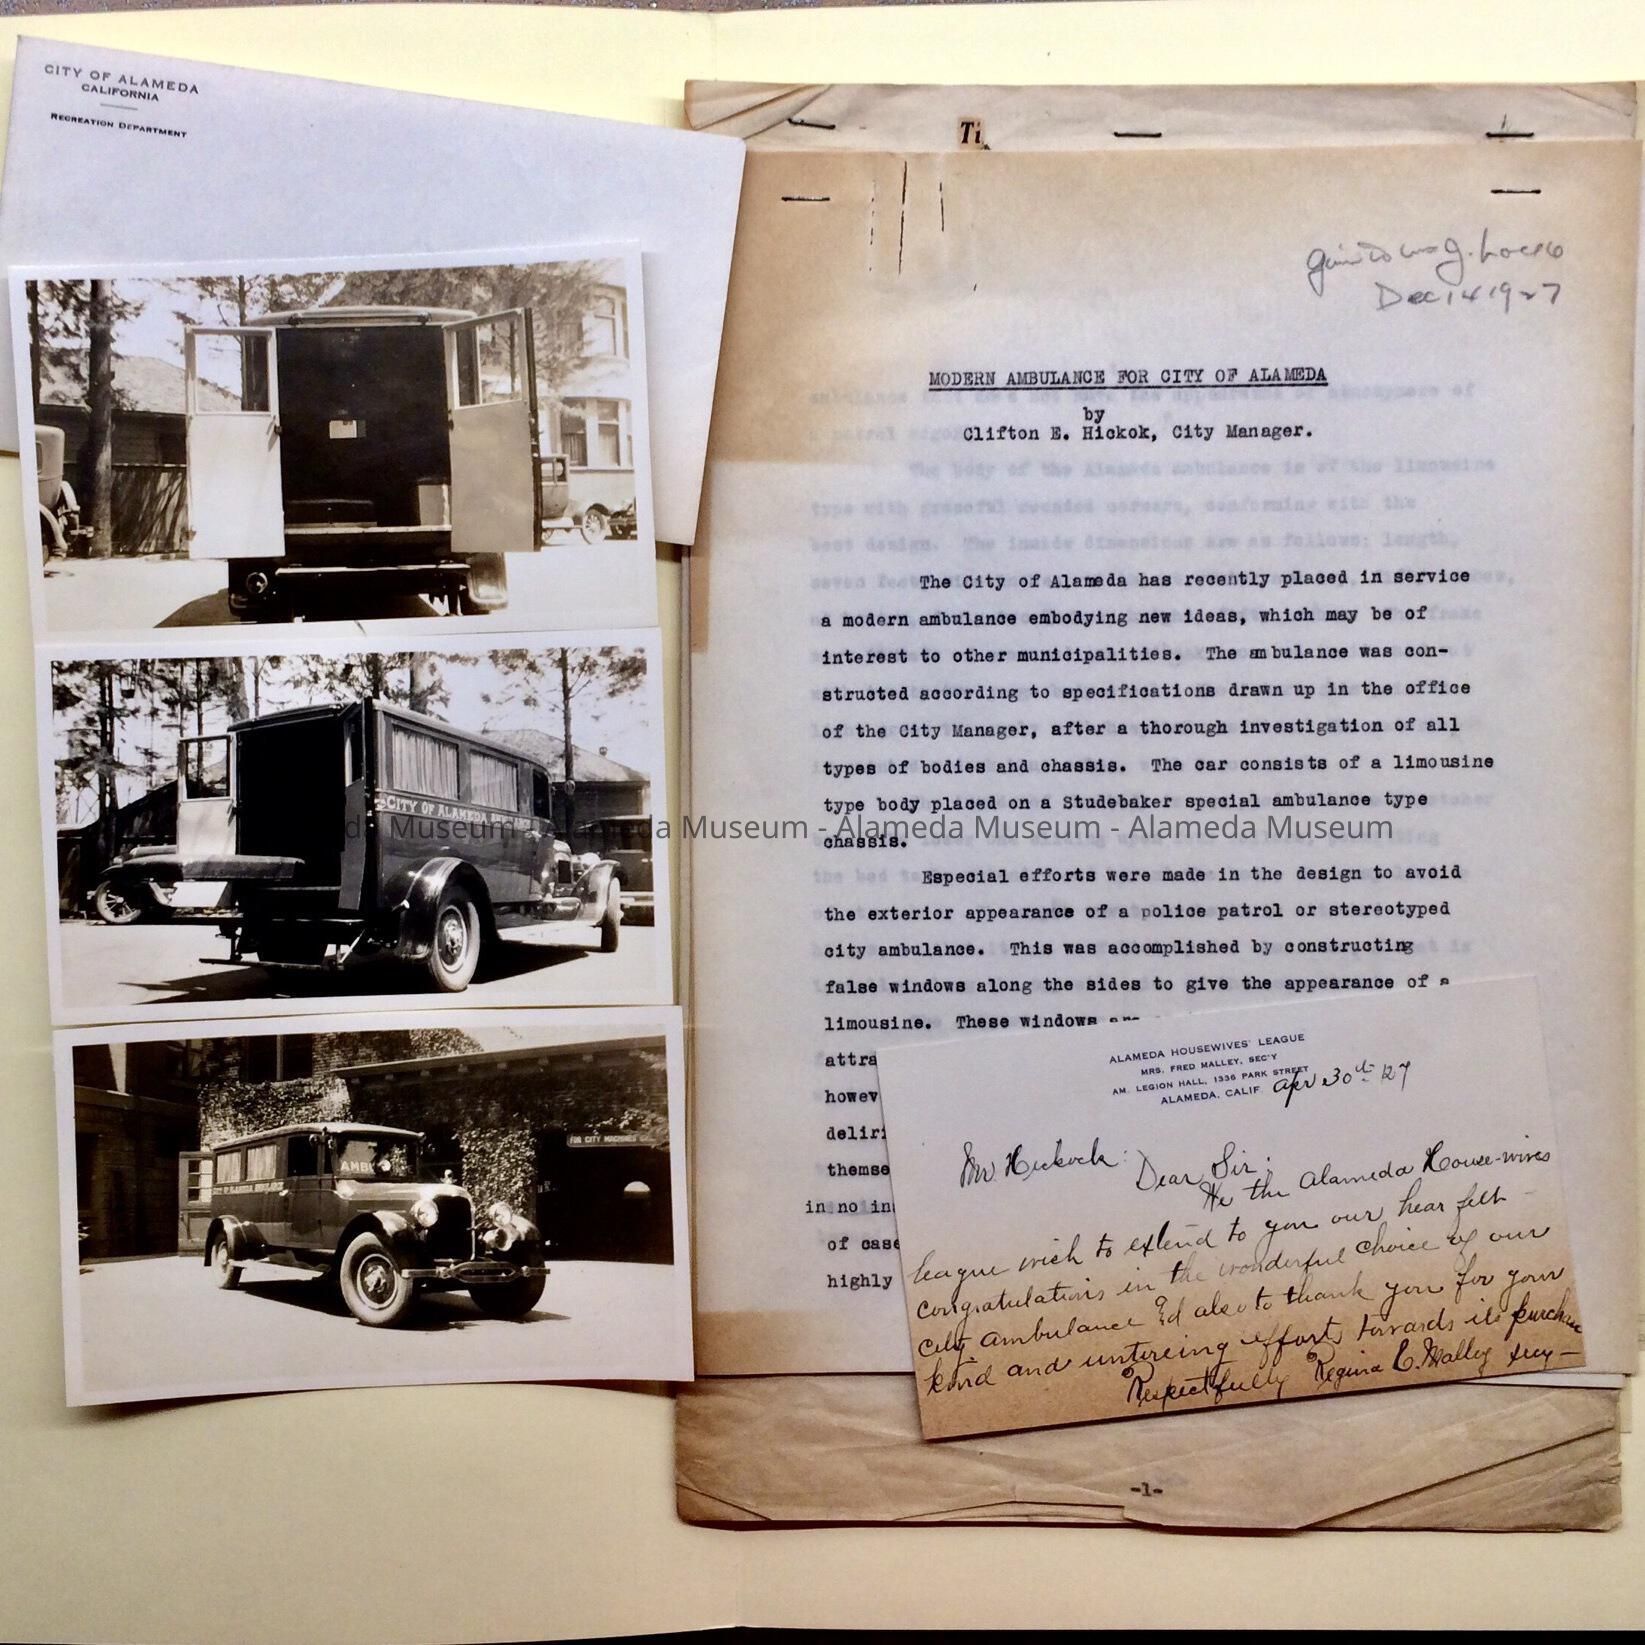 CITY OF ALAMEDA
CALIFORNIA
RECREATION DEPARTMENT
CITY OF ALAMEDA AMBULANCE
AMBU
FOR CITY MACHINES
CITY OF ALAMEDA AMBULANCE
Ti
Dec 14 1927
MODERN AMBULANCE FOR CITY OF ALAMEDA
by
Clifton E. Hickok, City Manager.
The City of Alameda has recently placed in service
a modern ambulance embodying new ideas, which may be of
interest to other municipalities. The ambulance was con-
structed according to specifications drawn up in the office
of the City Manager, after a thorough investigation of all
types of bodies and chassis. The car consists of a limousine
type body placed on a Studebaker special ambulance type
chassis.
Especial efforts were made in the design to avoid
the exterior appearance of a police patrol or stereotyped
city ambulance. This was accomplished by constructing
false windows along the sides to give the appearance of a
limousine. These windows are
attra
howev
deliri
themse
in no in
of case
highly
-1-
ALAMEDA HOUSEWIVES' LEAGUE
MRS. FRED MALLEY, SEC'Y
AM. LEGION HALL, 1336 PARK STREET
ALAMEDA, CALIF. Apr 30th 127
Mr Hickock: Dear Sir:
We the Alameda House-wives
league wish to extend to you our hear felt
congratulations in the wonderful choice of our
city ambulance & also to thank you for your
kind and untireing efforts towards its purchase
Respectfully Regina C. Malley secy—
Alameda Museum - Alameda Museum - Alameda Museum - Alameda Museum